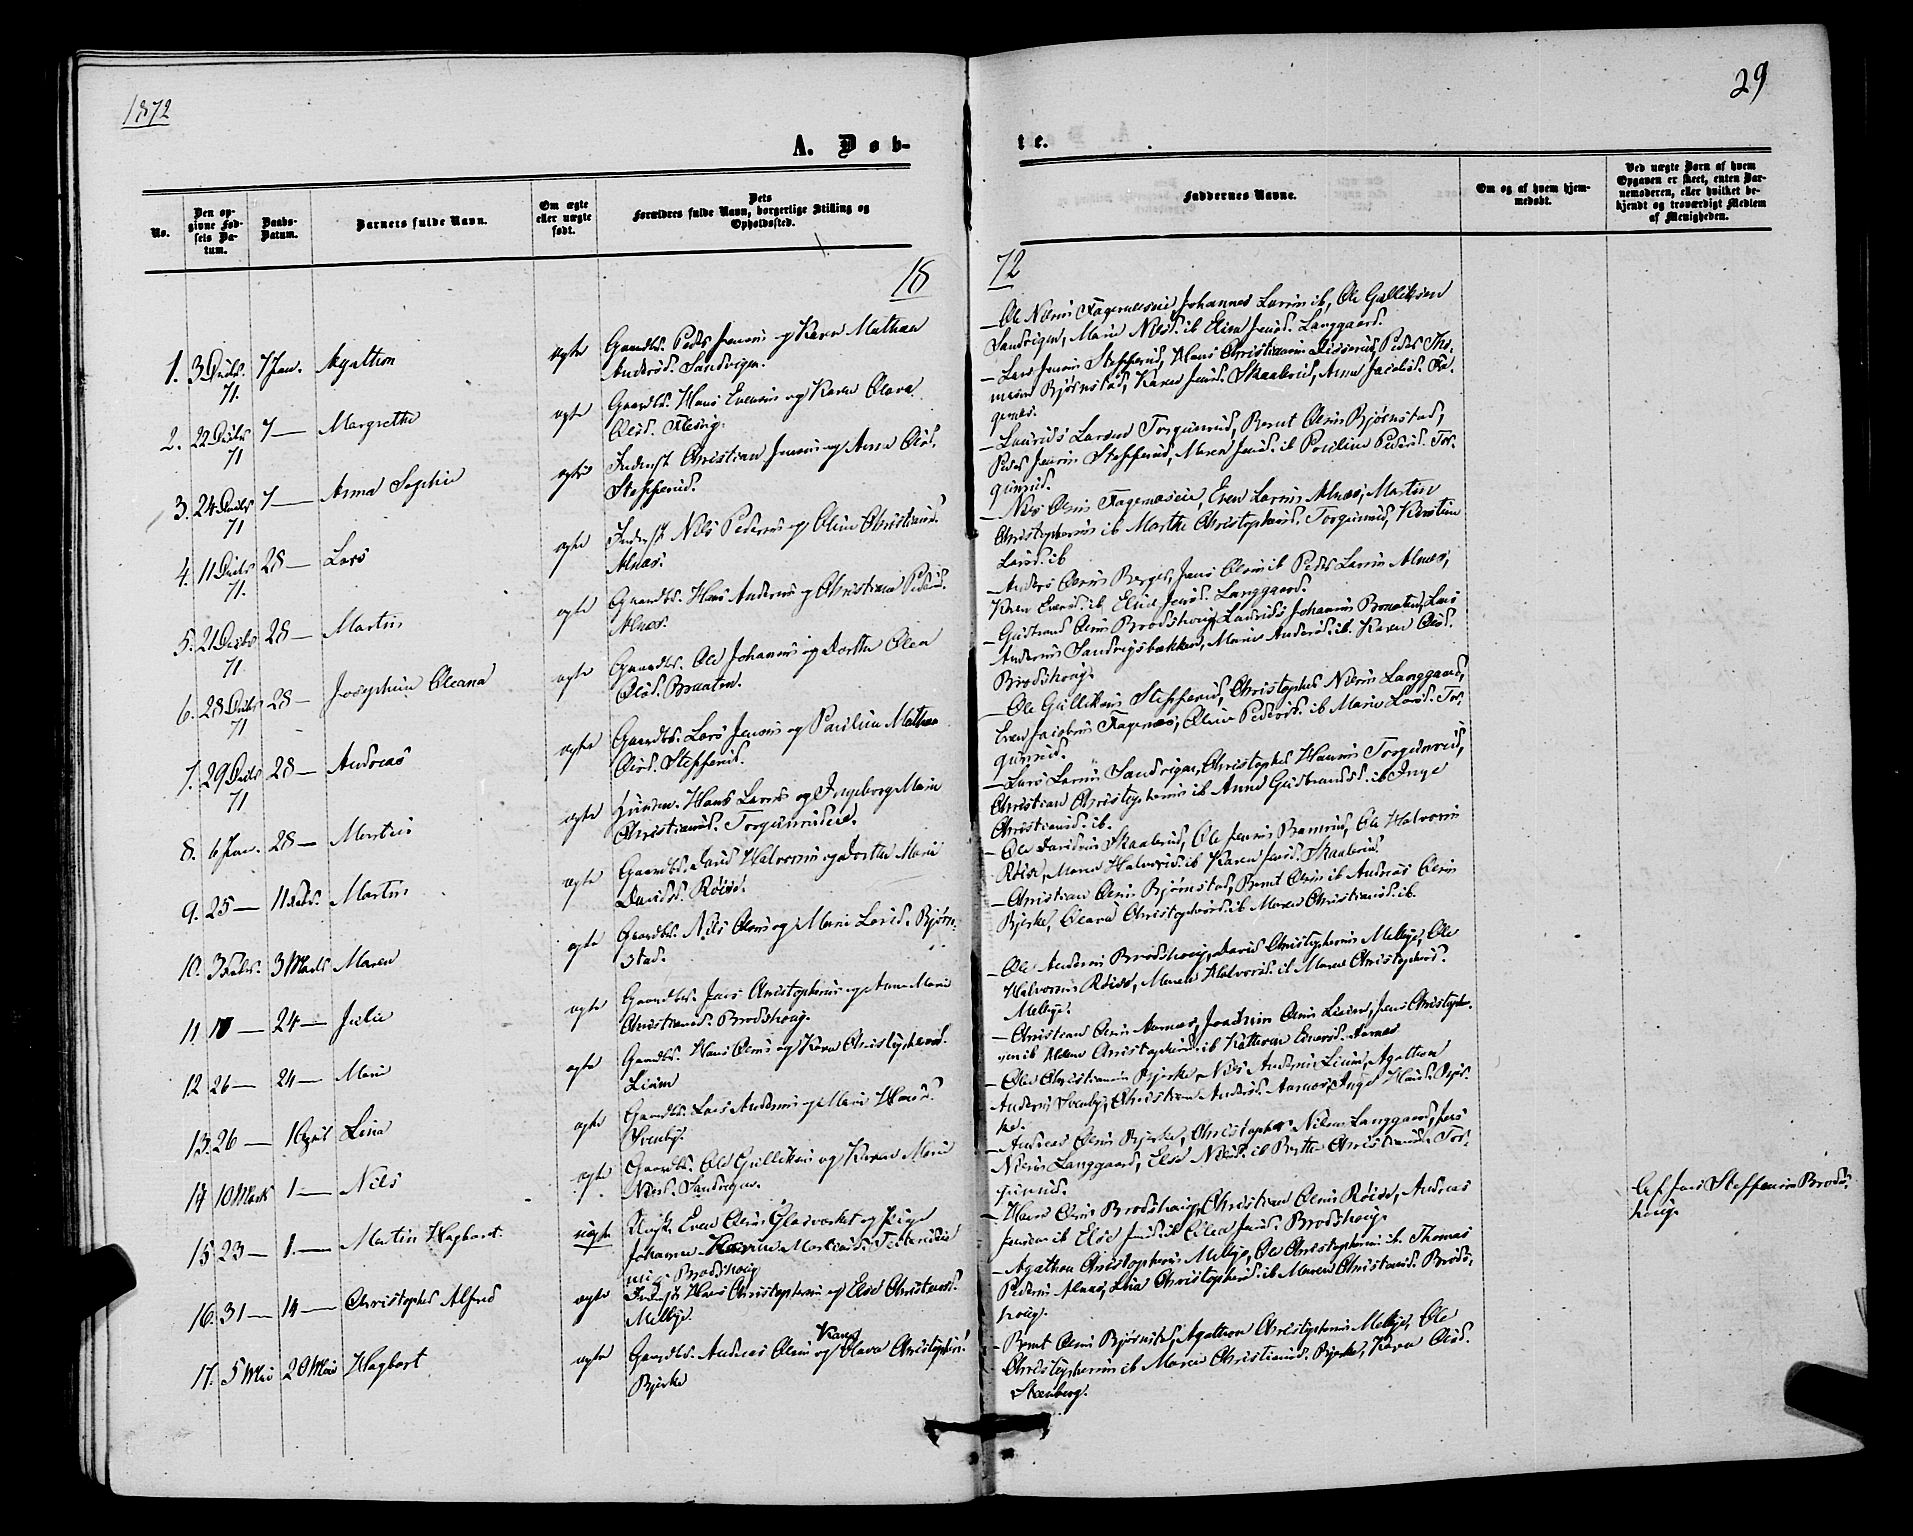 1872
A. Døb-
No.
Den opgivne Fødsels Datum.
Daabs-Datum.
Barnets fulde Navn.
Om ægte eller uægte født.
Dets Forældres fulde Navn, borgerlige Stilling og Opholdssted.
18
1. 3 Decbr 71. 7 Jan. Agathon ægte Gaardbr. Peder Jensen og Karen Mathea
Andersd. Sandvigen.
2. 22 Decbr 71 7 — Margrethe ægte Gaardbr. Hans Evensen og Karen Olava
Olsd.
3. 24 Decbr 71 7 — Anna Sophie ægte Inderst Christian Jensen og Anne Olsd.
Stefferud.
4. 11 Decbr 71. 28 — Lars ægte Inderst Nils Pedersen og Oline Christiansd.
Alnæs.
5. 21 Decbr 71. 28 — Martin ægte Gaardbr. Hans Andersen og Christiane Pedersd.
Alnæs.
6. 28 Decbr 71 28 — Josephine Oleana ægte Gaardbr. Ole Johansen og Dorthe Olea
Olsd. Braaten.
7. 29 Decbr 71 28 — Andreas ægte Gaardbr. Lars Jensen og Pauline Mathea
Olsd. Stefferud.
8. 6 Jan. 28 — Martin ægte Husmd. Hans Larsen og Ingeborg Marie
Christiansd. Torgunrudeie.
9. 25 — 11 Febr. Martin ægte Gaardbr. David Halvorsen og Dorthe Marie
Davidsd. Røise.
10. 3 Febr. 3 Marts Maren ægte Gaardbr. Nils Olsen og Marie Larsd. Bjørn-
stad.
11. 17 — 24 — Julie ægte Gaardbr. Jens Christophersen og Anne Marie
Christiansd. Brodshoug.
12 26 — 24 — Marie ægte Gaardbr. Hans Olsen og Karen Christophersd.
Lieim
13. 26 — 1 April Lina ægte Gaardbr. Lars Andersen og Marie Hansd.
Svenby.
14 10 Marts 1 — Nils ægte Gaardbr. Ole Gulliksen og Karen Marie
Nilsd. Sandvigen.
15 23 — 1. — Martin Hagbart. uægte Ungk. Even Olsen Glasværket og Pige
Johanne Martinsd.
Brodshoug
16. 31 — 14 — Christopher Alfred ægte Inderst Hans Christophersen og Else Christiansd.
Melbye.
17. 5 Mai 20 Mai Hagbart ægte Gaardbr. Andreas Olsen og Karen Olava Christophersd.
Bjerke
29
te.
Faddernes Navne.
Om og af hvem hjemmedøbt.
Ved uægte Børn af hvem Opgaven er skeet, enten Barnemoderen, eller hvilket bekjendt og troværdigt Medlem af Menigheden.
72
— Ole Nilsen Fagernæseie, Johannes Larsen ib, Ole Gulliksen
Sandvigen, Marie Nilsd. ib Elise Jensd. Langgaard.
— Lars Jensen Stefferud, Hans Christiansen Disserud, Peder Tho-
mesen Bjørnstad, Karen Jensd. Skaalerud, Anne Jacobsd. Fa-
gernæs.
— Laurids Larsen Torgunrud, Bernt Olsen Bjørnstad,
Peder Jensen Stefferud, Maren Jensd. ib Pauline Pedersd. Tor-
gunrud.
— Nils Olsen Fagernæseie, Even Larsen Alnæs, Martin
Christophersen ib Marthe Christophersd. Torgunrud, Kirstine
Larsd. ib
— Anders Olsen Berger, Jens Olsen ib Peder Larsen Alnæs,
Karen Evensd. ib, Elise Jensd. Langgaard.
— Gulbrand Olsen Brodshoug, Laurids Johansen Braaten, Lars
Andersen Sandvigsbakken, Marie Andersd. ib. Karen Olsd.
Brodshoug.
— Ole Gulliksen Stefferud, Christopher Nilsen Langgaard,
Even Jacobsen Fagernæs, Oline Pedersd. ib Marie Larsd. Tor-
gunrud.
— Lars Larsen Sandvigen, Christopher Hansen Torgunrud,
Christian Christophersen ib Anne Gulbrandsd. ib Inge
Christiansd. ib.
— Ole Davidsen Skaalerud, Ole Jensen Ramrud, Ole Halvorsen
Røise, Maren Halvorsd. ib Karen Jensd. Skaalerud.
— Christian Olsen Bjørnstad, Bernt Olsen ib Andreas Olsen
Bjerke, Olava Christophersd. ib Maren Christiansd. ib.
— Ole Andersen Brodshoug, David Christophersen Melbye, Ole
Halvorsen Røise, Maren Halvorsd. ib Maren Christophersd.
Melbye.
— Christian Olsen Aarnæs, Joachim Olsen Lieim, Jens Christopher-
sen ib Helene Christophersd. ib Kathrine Einersd. Aarnæs
— Ole Christiansen Bjerke, Nils Andersen Lieim, Agathon
Andersen Svenby, Christiane Andersd. Aarnæs, Inge Hansd. Bjer-
ke.
— Andreas Olsen Bjerke, Christopher Nilsen Langgaard, Lars
Nilsen Langgaard, Else Nilsd. ib Bertha Christiansd. Tor-
gunrud.
— Hans Olsen Brodshoug, Christian Olsen Røise, Andreas
Jensen ib Else Jensd. ib Olea Jensd. Brodshoug.
— Agathon Christophersen Melbye, Ole Christophersen ib. Thomas
Pedersen Alnæs, Lina Christophersd. ib Maren Christiansd. Brods-
houg.
— Bernt Olsen Bjørnstad, Agathon Christophersen Melbye, Ole
Christophersen ib Maren Christiansd. Bjerke, Karen Olsd.
Steenberg.
Af Jens Steffensen Brods-
houg.